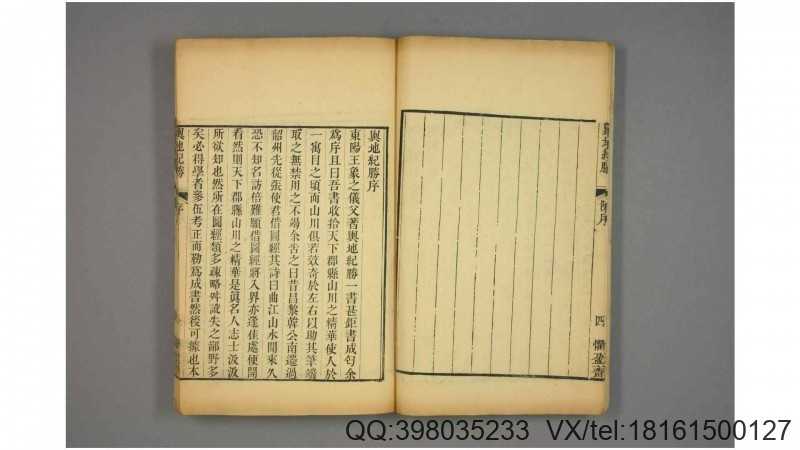 四
輿地紀勝序
東陽王象之儀父著輿地紀勝一書甚鉅書成匄余
爲序且曰吾書收拾天下郡縣山川之精華使人於
一寓目之頃而山川俱若效奇於左右以助其筆端
取之無禁用之不竭余告之曰昔昌黎韓公南遷過
韶州先從張使君借圖經其詩曰曲江山水聞來久
恐不知名訪倍難願借圖經將入界亦逢佳處便開
看然則天下郡縣山川之精華是眞名人志士汲汲
所欲知也然所在圖經類多疎略舛訛失之鄙野多
矣必得學者參伍考正而勒爲成書然後可據也本
輿地紀勝
序
QQ:398035233 VX/tel:18161500127